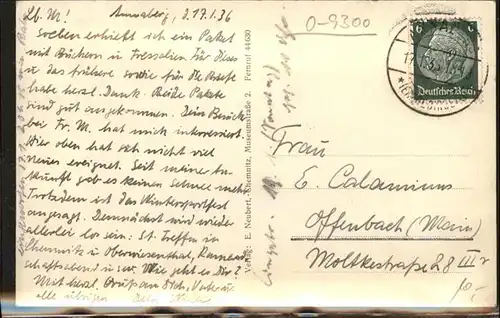 Lb. M! Annaberg, d. 17.1.36
Soeben erhielt ich ein Paket
mit Büchern u. Fressalien. Für Dieses
u. das frühere sowie für die Briefe
habe herzl. Dank. Beide Pakete
sind gut angekommen. Dein Besuch
bei Fr. M. hat mich interessiert.
Hier oben hat sich nicht viel
neues ereignet. Seit meiner An-
kunft gab es keinen Schnee mehr
Trotzdem ist das Wintersportfest
angesagt. Demnächst wird wieder
allerlei los sein: St. treffen in
Chemnitz u. Oberwiesenthal, Kamerad-
schaftsabend u.s.w. Wie geht es Dir?
Mit herzl. Gruß an Dich, Vater u.
alle übrigen Dein
Verlag: E. Neubert, Chemnitz, Museumstraße 2. Fernruf 44630
0-9300
6
Deutsches Reich
Frau
E. Calaminus
Offenbach (Main)
Moltkestraße 28 III r